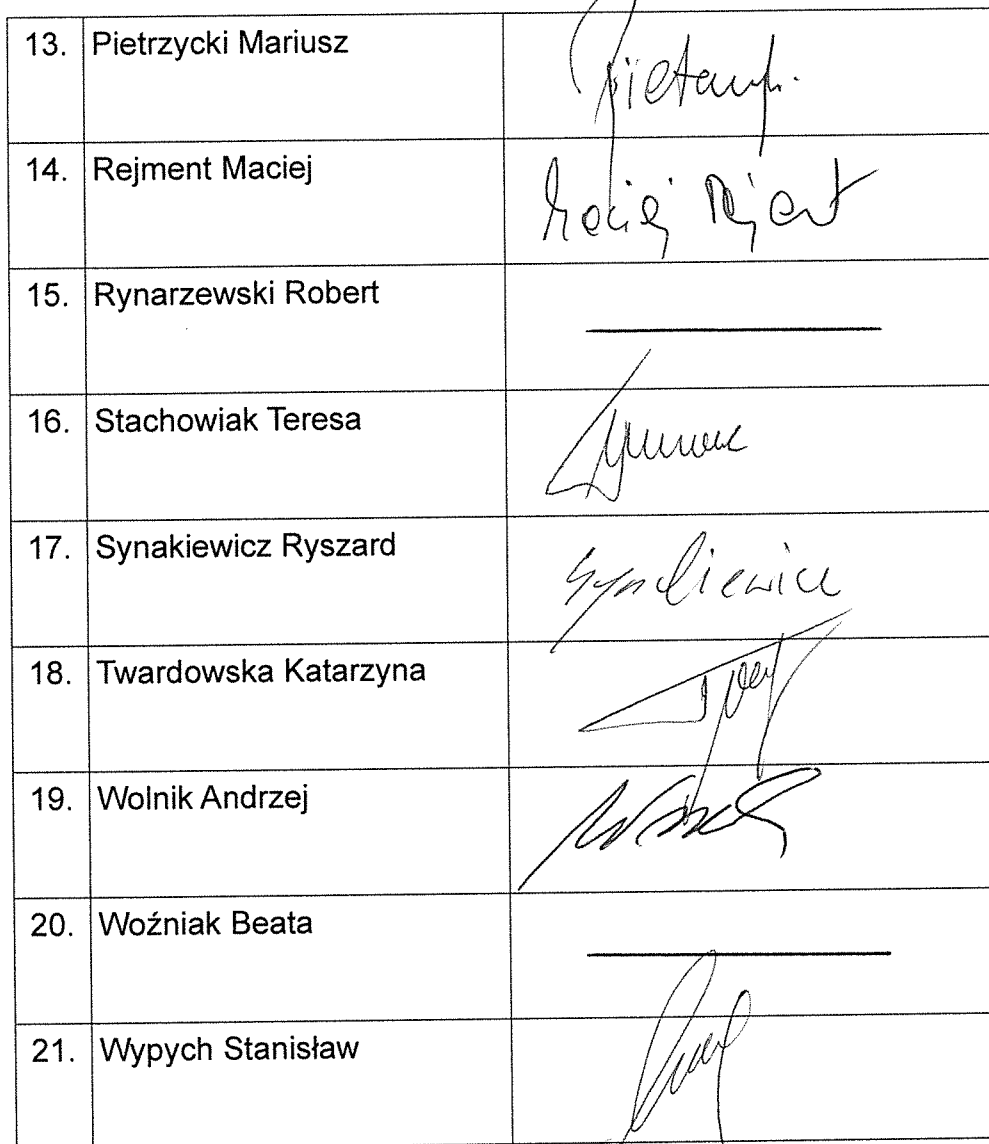 13. Pietrzycki Mariusz
14. Rejment Maciej
Maciej
15. Rynarzewski Robert
16. Stachowiak Teresa
17. Synakiewicz Ryszard
Synakiewicz
18. Twardowska Katarzyna
19. Wolnik Andrzej
20. Woźniak Beata
21. Wypych Stanisław